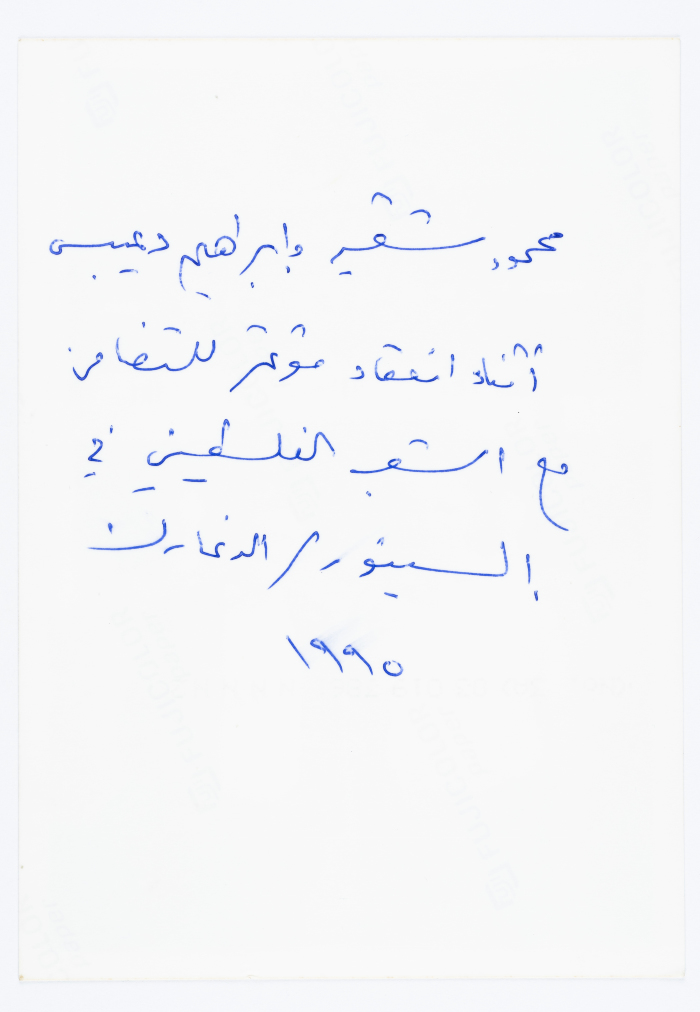 محمود شقير وابراهيم دعيبس
أثناء انعقاد مؤتمر للتضامن
مع الشعب الفلسطيني في
إلسينور/ الدنمارك
١٩٩٥